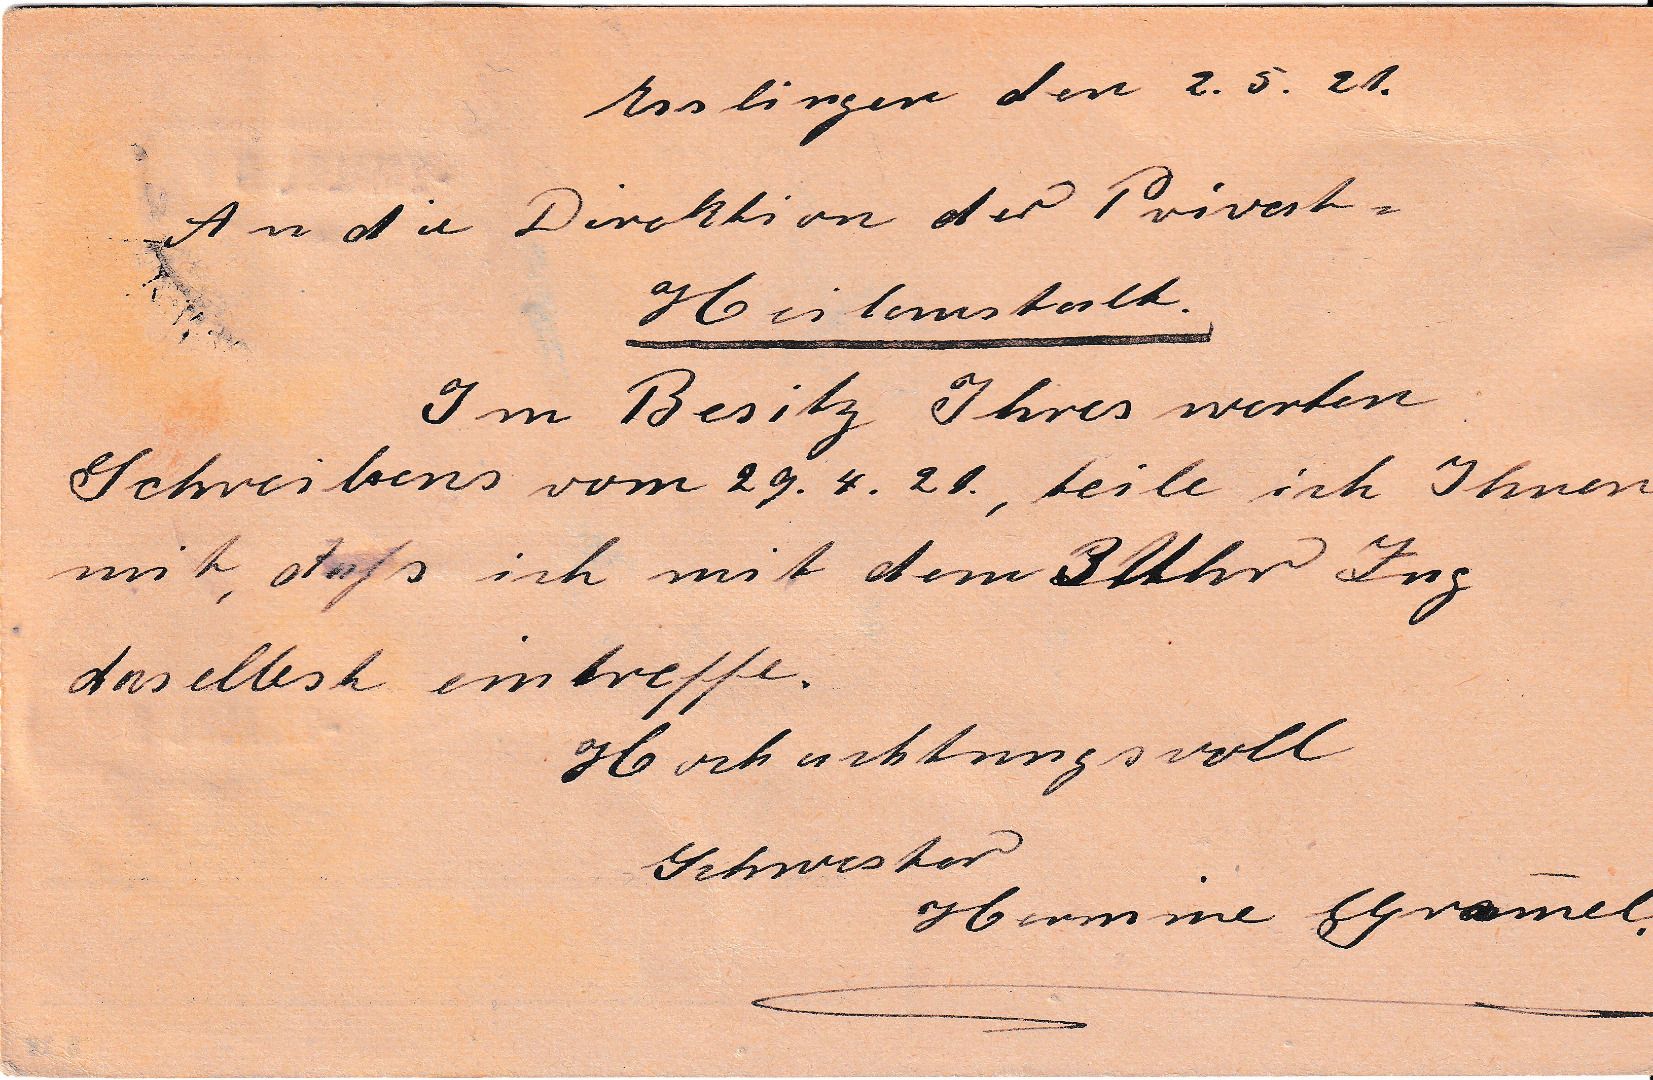 Esslingen den 2. 5. 21.
An die Direktion der Privat-
Heilanstalt.
Im Besitz Ihres werten
Schreibens vom 29. 4. 21., teile ich Ihnen
mit, daß ich mit dem 3 Uhr Zug
daselbst eintreffe.
Hochachtungsvoll
Schwester
Hermine